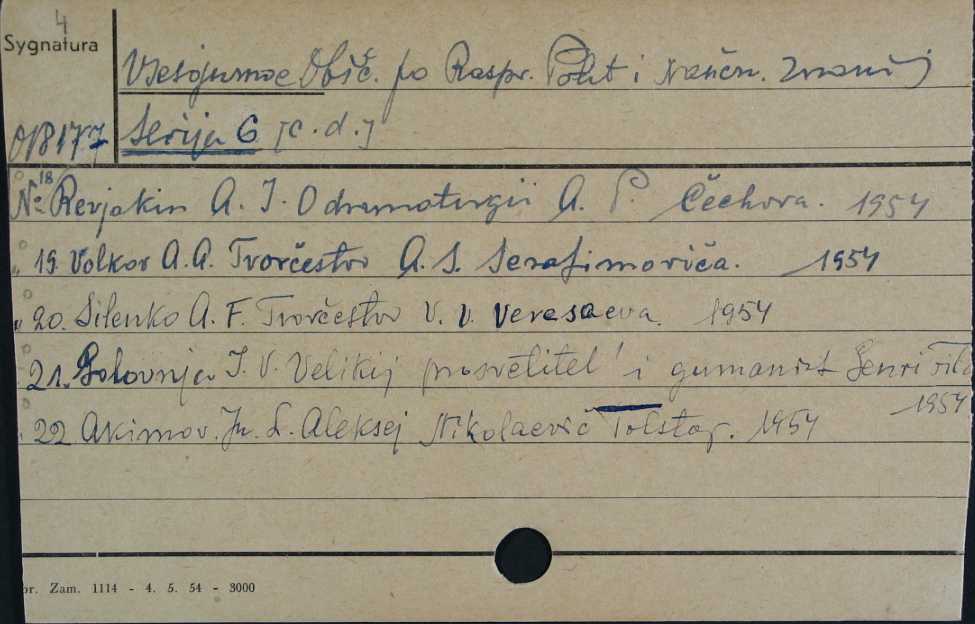 4
Sygnatura
Vsesojuznoe Obšč. po Raspr. Polit i Naučn. Znanij
OB177 Serija 6 [c.d.]
№ 18 Revjakin A. I. O dramaturgii A. P. Čechova. 1954
" 19. Volkov A. A. Tvorčestvo A. S. Serafimoviča. 1954
" 20. Silenko A. F. Tvorčestvo V. V. Veresaeva. 1954
" 21. Golovnja I. V. Velikij prosvětitel' i gumanist Genri Fild
1954
" 22 Akimov. Ju. L. Aleksej Nikolaevič Tolstoj. 1954
or. Zam. 1114 - 4. 5. 54 - 3000